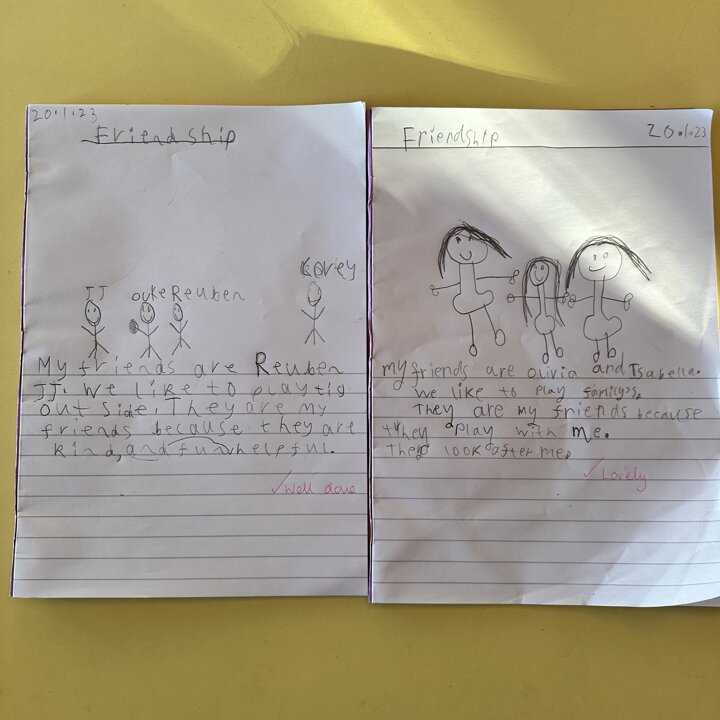 20.1.23
Friendship
Corey
JJ ouke Reuben
My friends are Reuben
JJ. We like to play tig
out side. They are my
friends because they are
kind, and fun helpful.
✓ Well done
Friendship 20.1.23
my friends are olivia and Isabella.
we like to play familys.
They are my friends because
they play with me.
They look after me.
✓ Lovely